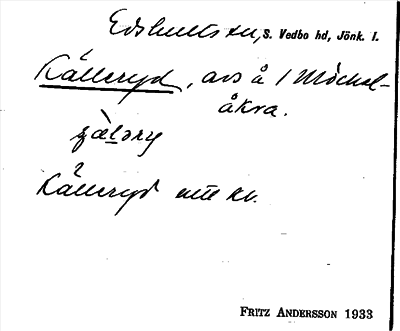 Edshults sn, S. Vedbo hd, Jönk. l.
Källeryd, avs å / Möckel-
åkra.
Källeryd mtl kv.
FRITZ ANDERSSON 1933